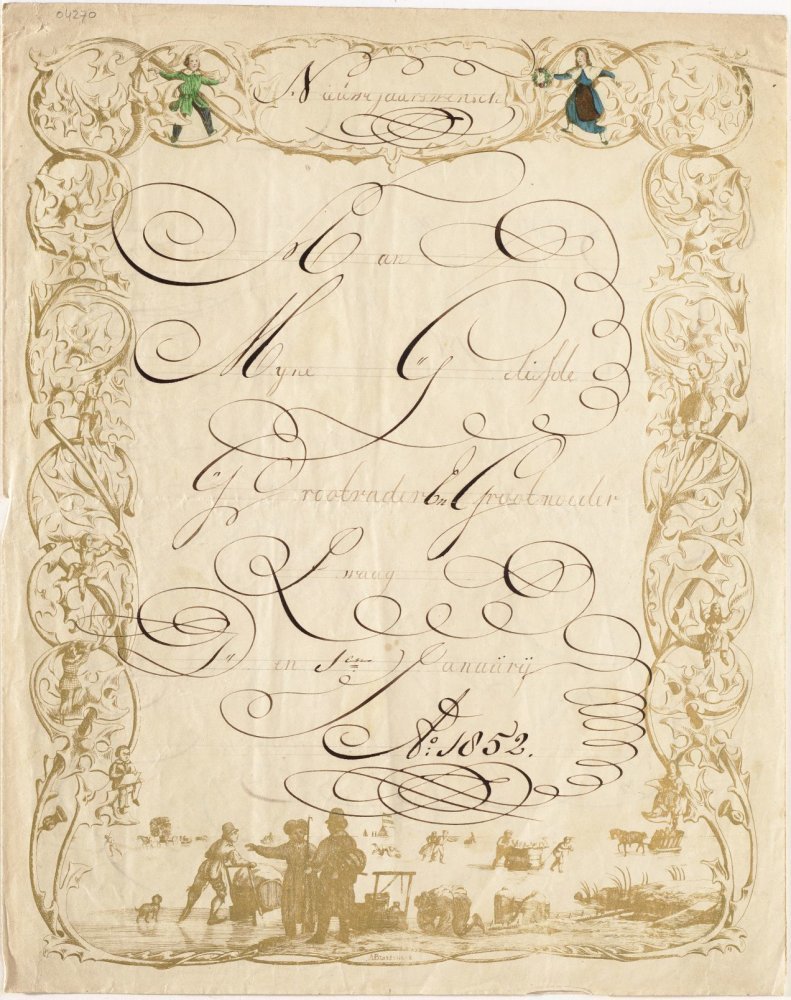 04270
Nieuwejaarswensch
Aan
Myne Geliefde
Grootvader En Grootmoeder
Praag
Den 1en Januärij
Ao: 1852.